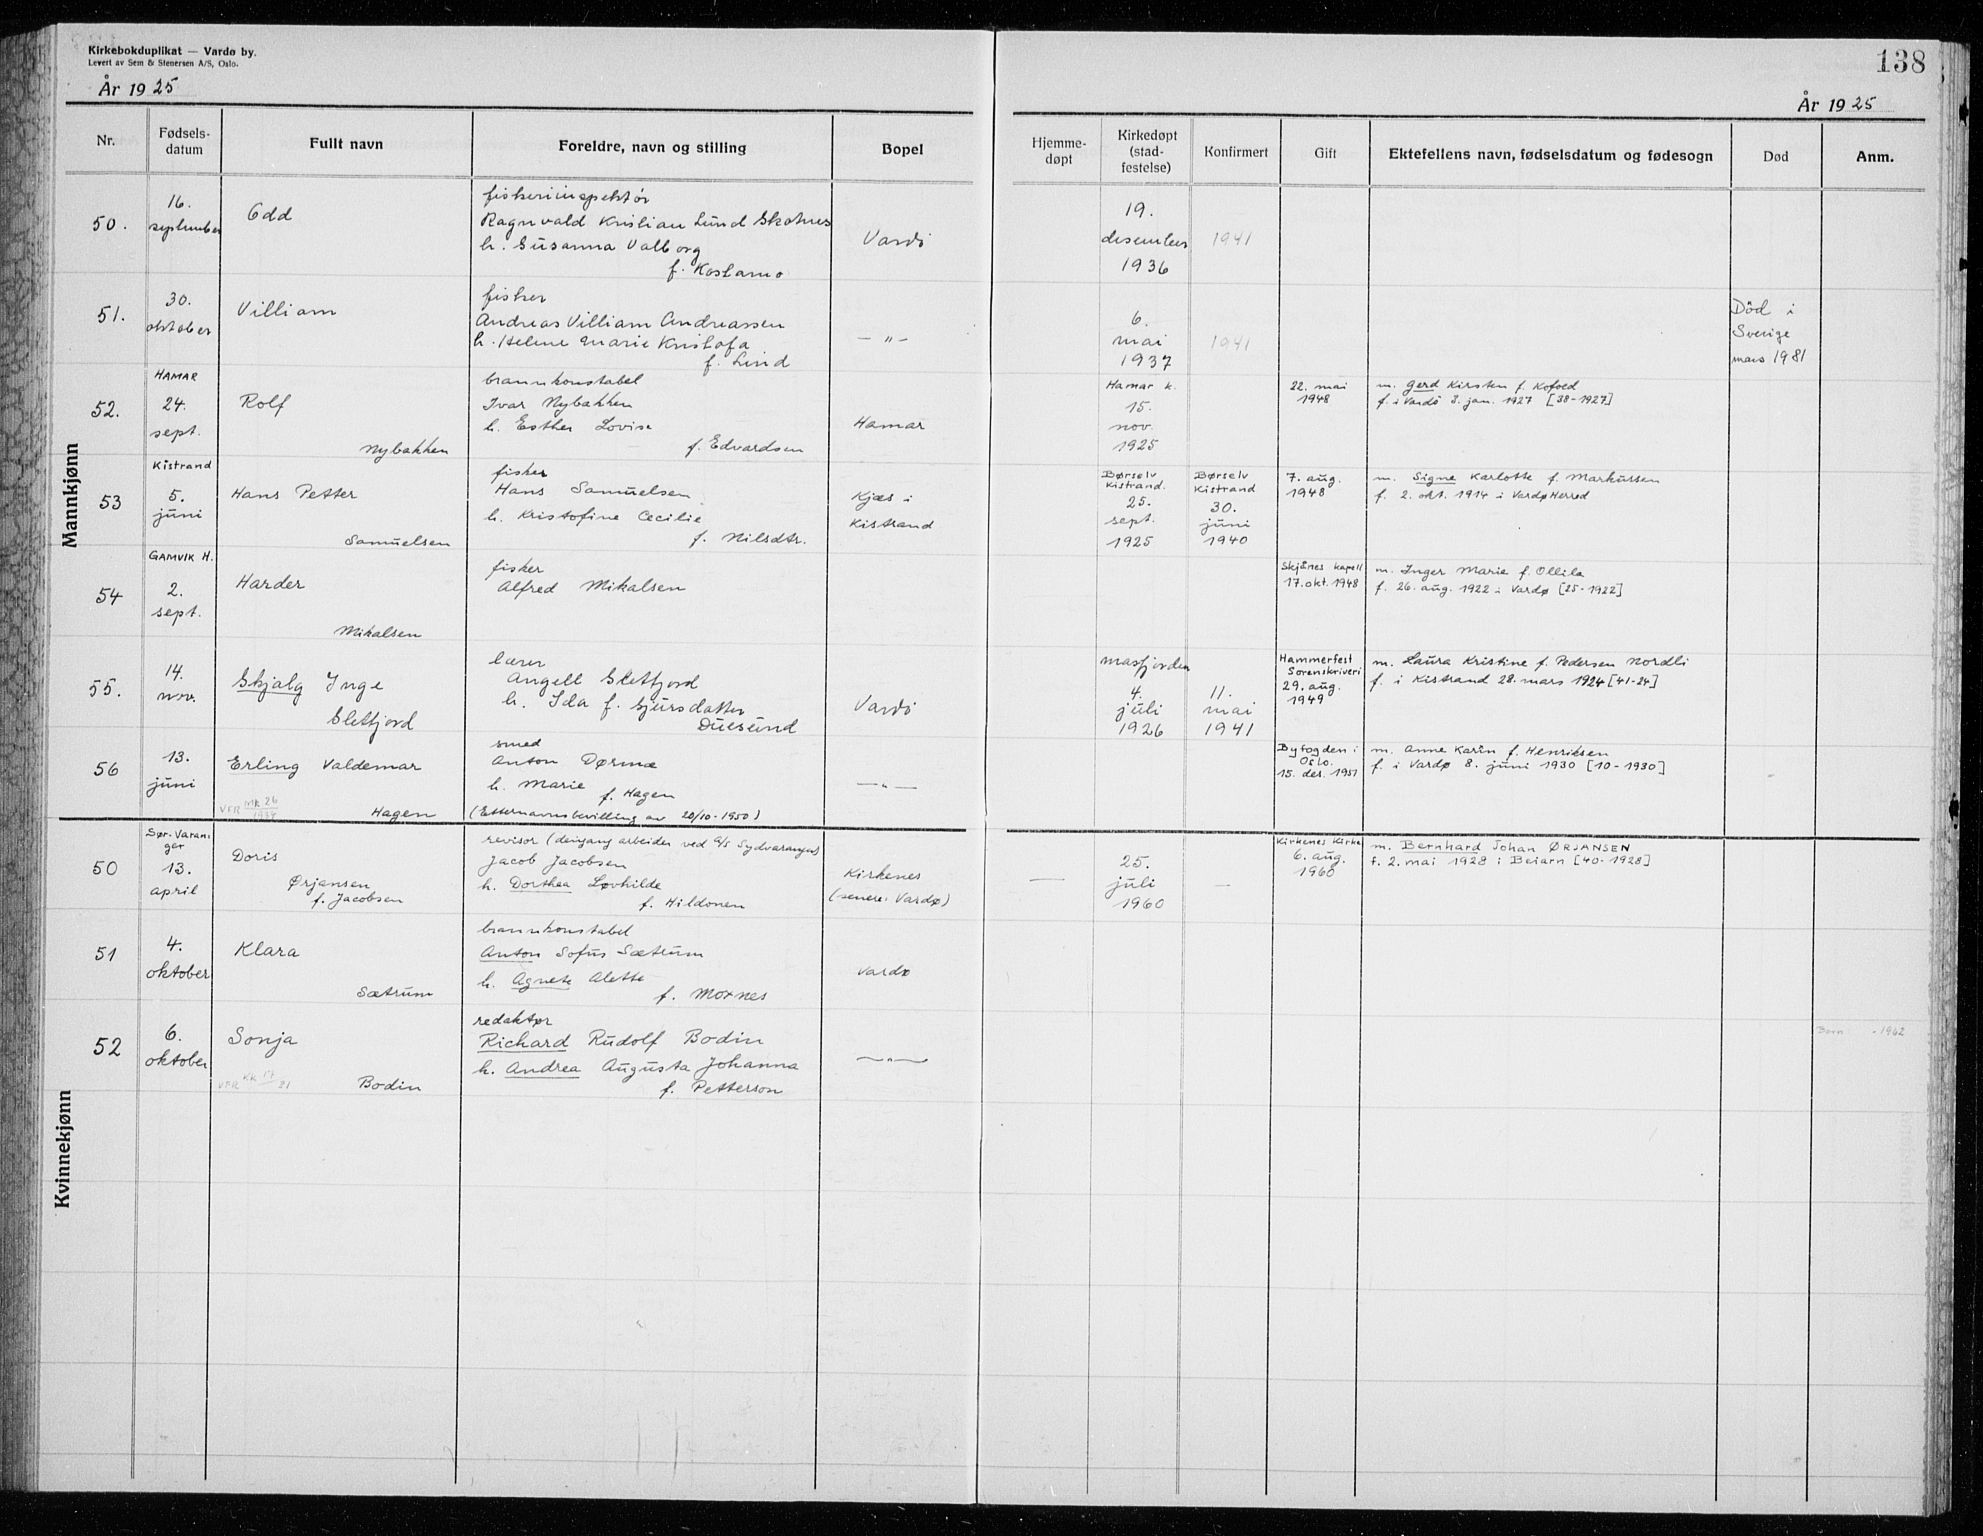 Kirkebokduplikat — Vardø by.
Levert av Sem & Stenersen A/S, Oslo.
År 1925
138
År 1925
Nr.
Fødsels-
datum
Fullt navn
Foreldre, navn og stilling
Bopel
Hjemme-
døpt
Kirkedøpt
(stad-
festelse)
Konfirmert
Gift
Ektefellens navn, fødselsdatum og fødesogn
Død
Anm.
Mannkjønn
50.
16.
september
Odd
fiskeriinspektör
Ragnvald Kristian Lund Skotnes
h. Susanna Valborg
f. Kostamo
Vardö
19.
desember
1936
1941
51.
30.
oktober
Villiam
fisker
Andreas Villiam Andreassen
h. Helene Marie Kristofa
f. Lind
— " —
6.
mai
1937
1941
Död i
Sverige
mars 1981
52.
HAMAR
24.
sept.
Rolf
Nybakken
brannkonstabel
Ivar Nybakken
h. Esther Lovise
f. Edvardsen
Hamar
Hamar k.
15.
nov.
1925
22. mai
1948
m. Gerd Kirsten f. Kofoed
f. i Vardö 3. jan. 1927 [38-1927]
53
Kistrand
5.
juni
Hans Petter
Samuelsen
fisker
Hans Samuelsen
h. Kristofine Cecilie
f. Nilsdtr.
Kjæs i
Kistrand
Børselv
Kistrand.
25.
sept.
1925
Børselv
Kistrand
30.
juni
1940
7. aug.
1948
m. Signe Karlotte f. Markussen
f. 2. okt. 1914 i Vardø Herred
54
GAMVIK H.
2.
sept.
Harder
Mikalsen
fisker
Alfred Mikalsen
Skjånes kapell
17. okt. 1948
m. Inger Marie f. Ollila
f. 26. aug. 1922 i Vardø [25-1922]
55.
14.
nov.
Skjalg Inge
Sletfjord
lærer
Angell Sletfjord
h. Ida f. Sjursdatter
Duesund
Vardö
Masfjorden
4.
juli
1926
11.
mai
1941
Hammerfest
Sorenskriveri
29. aug.
1949
m. Laura Kristine f. Pedersen Nordli
f. i Kistrand 28. mars 1924 [41-24]
56
13.
juni
Erling Valdemar
VFR MK 26
Hagen
smed
Anton Dørmæ
h. Marie f. Hagen
(Etternavnsbevilling av 20/10-1950)
— " —
Byfogden i
Oslo.
15. des. 1951
m. Anne Karin f. Henriksen
f. i Vardø 8. juni 1930 [10-1930]
Kvinnekjønn
50
Sør-Varan-
ger
13.
april
Doris
Ørjansen
f. Jacobsen
revisor (dengang arbeider ved A/S Sydvaranger)
Jacob Jacobsen
h. Dorthea Løvhilde
f. Hildonen
Kirkenes
(senere: Vardø)
—
25.
juli
1960
—
Kirkenes Kirke
6. aug.
1960
m. Bernhard Johan ØRJANSEN
f. 2. mai 1928 i Beiarn [40-1928]
51
4.
oktober
Klara
Sætrum
brannkonstabel
Anton Sofus Sætrum
h. Agnete Alette
f. Moxnes
Vardø
52
6.
oktober
Sonja
VFR KK 17
21
Bodin
redaktør
Richard Rudolf Bodin
h. Andrea Augusta Johanna
f. Petterson
— " —
Barn -1962